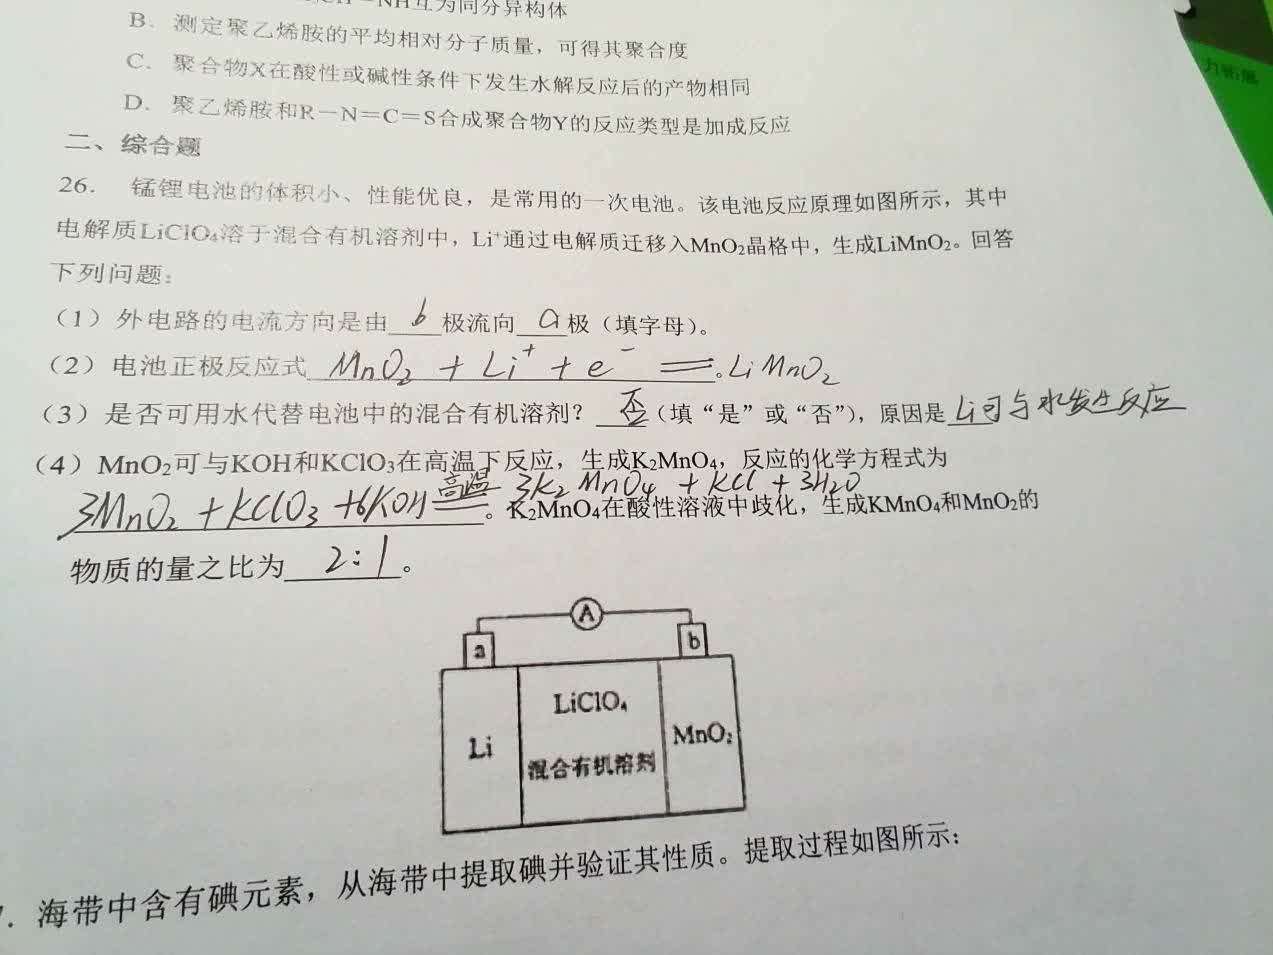 NH互为同分异构体
B. 测定聚乙烯胺的平均相对分子质量，可得其聚合度
C. 聚合物X在酸性或碱性条件下发生水解反应后的产物相同
D. 聚乙烯胺和R－N＝C＝S合成聚合物Y的反应类型是加成反应
二、综合题
26. 锰锂电池的体积小、性能优良，是常用的一次电池。该电池反应原理如图所示，其中
电解质LiClO₄溶于混合有机溶剂中，Li⁺通过电解质迁移入MnO₂晶格中，生成LiMnO₂。回答
下列问题：
（1）外电路的电流方向是由 b 极流向 a 极（填字母）。
（2）电池正极反应式 MnO₂ + Li⁺ + e⁻ ══ 。LiMnO₂
（3）是否可用水代替电池中的混合有机溶剂？ 否 （填“是”或“否”），原因是 Li可与水发生反应
（4）MnO₂可与KOH和KClO₃在高温下反应，生成K₂MnO₄，反应的化学方程式为
3MnO₂ + KClO₃ + 6KOH 高温 ══ 3K₂MnO₄ + KCl + 3H₂O
。K₂MnO₄在酸性溶液中歧化，生成KMnO₄和MnO₂的
物质的量之比为 2:1 。
A
a
b
LiClO₄
Li
MnO₂
混合有机溶剂
. 海带中含有碘元素，从海带中提取碘并验证其性质。提取过程如图所示：